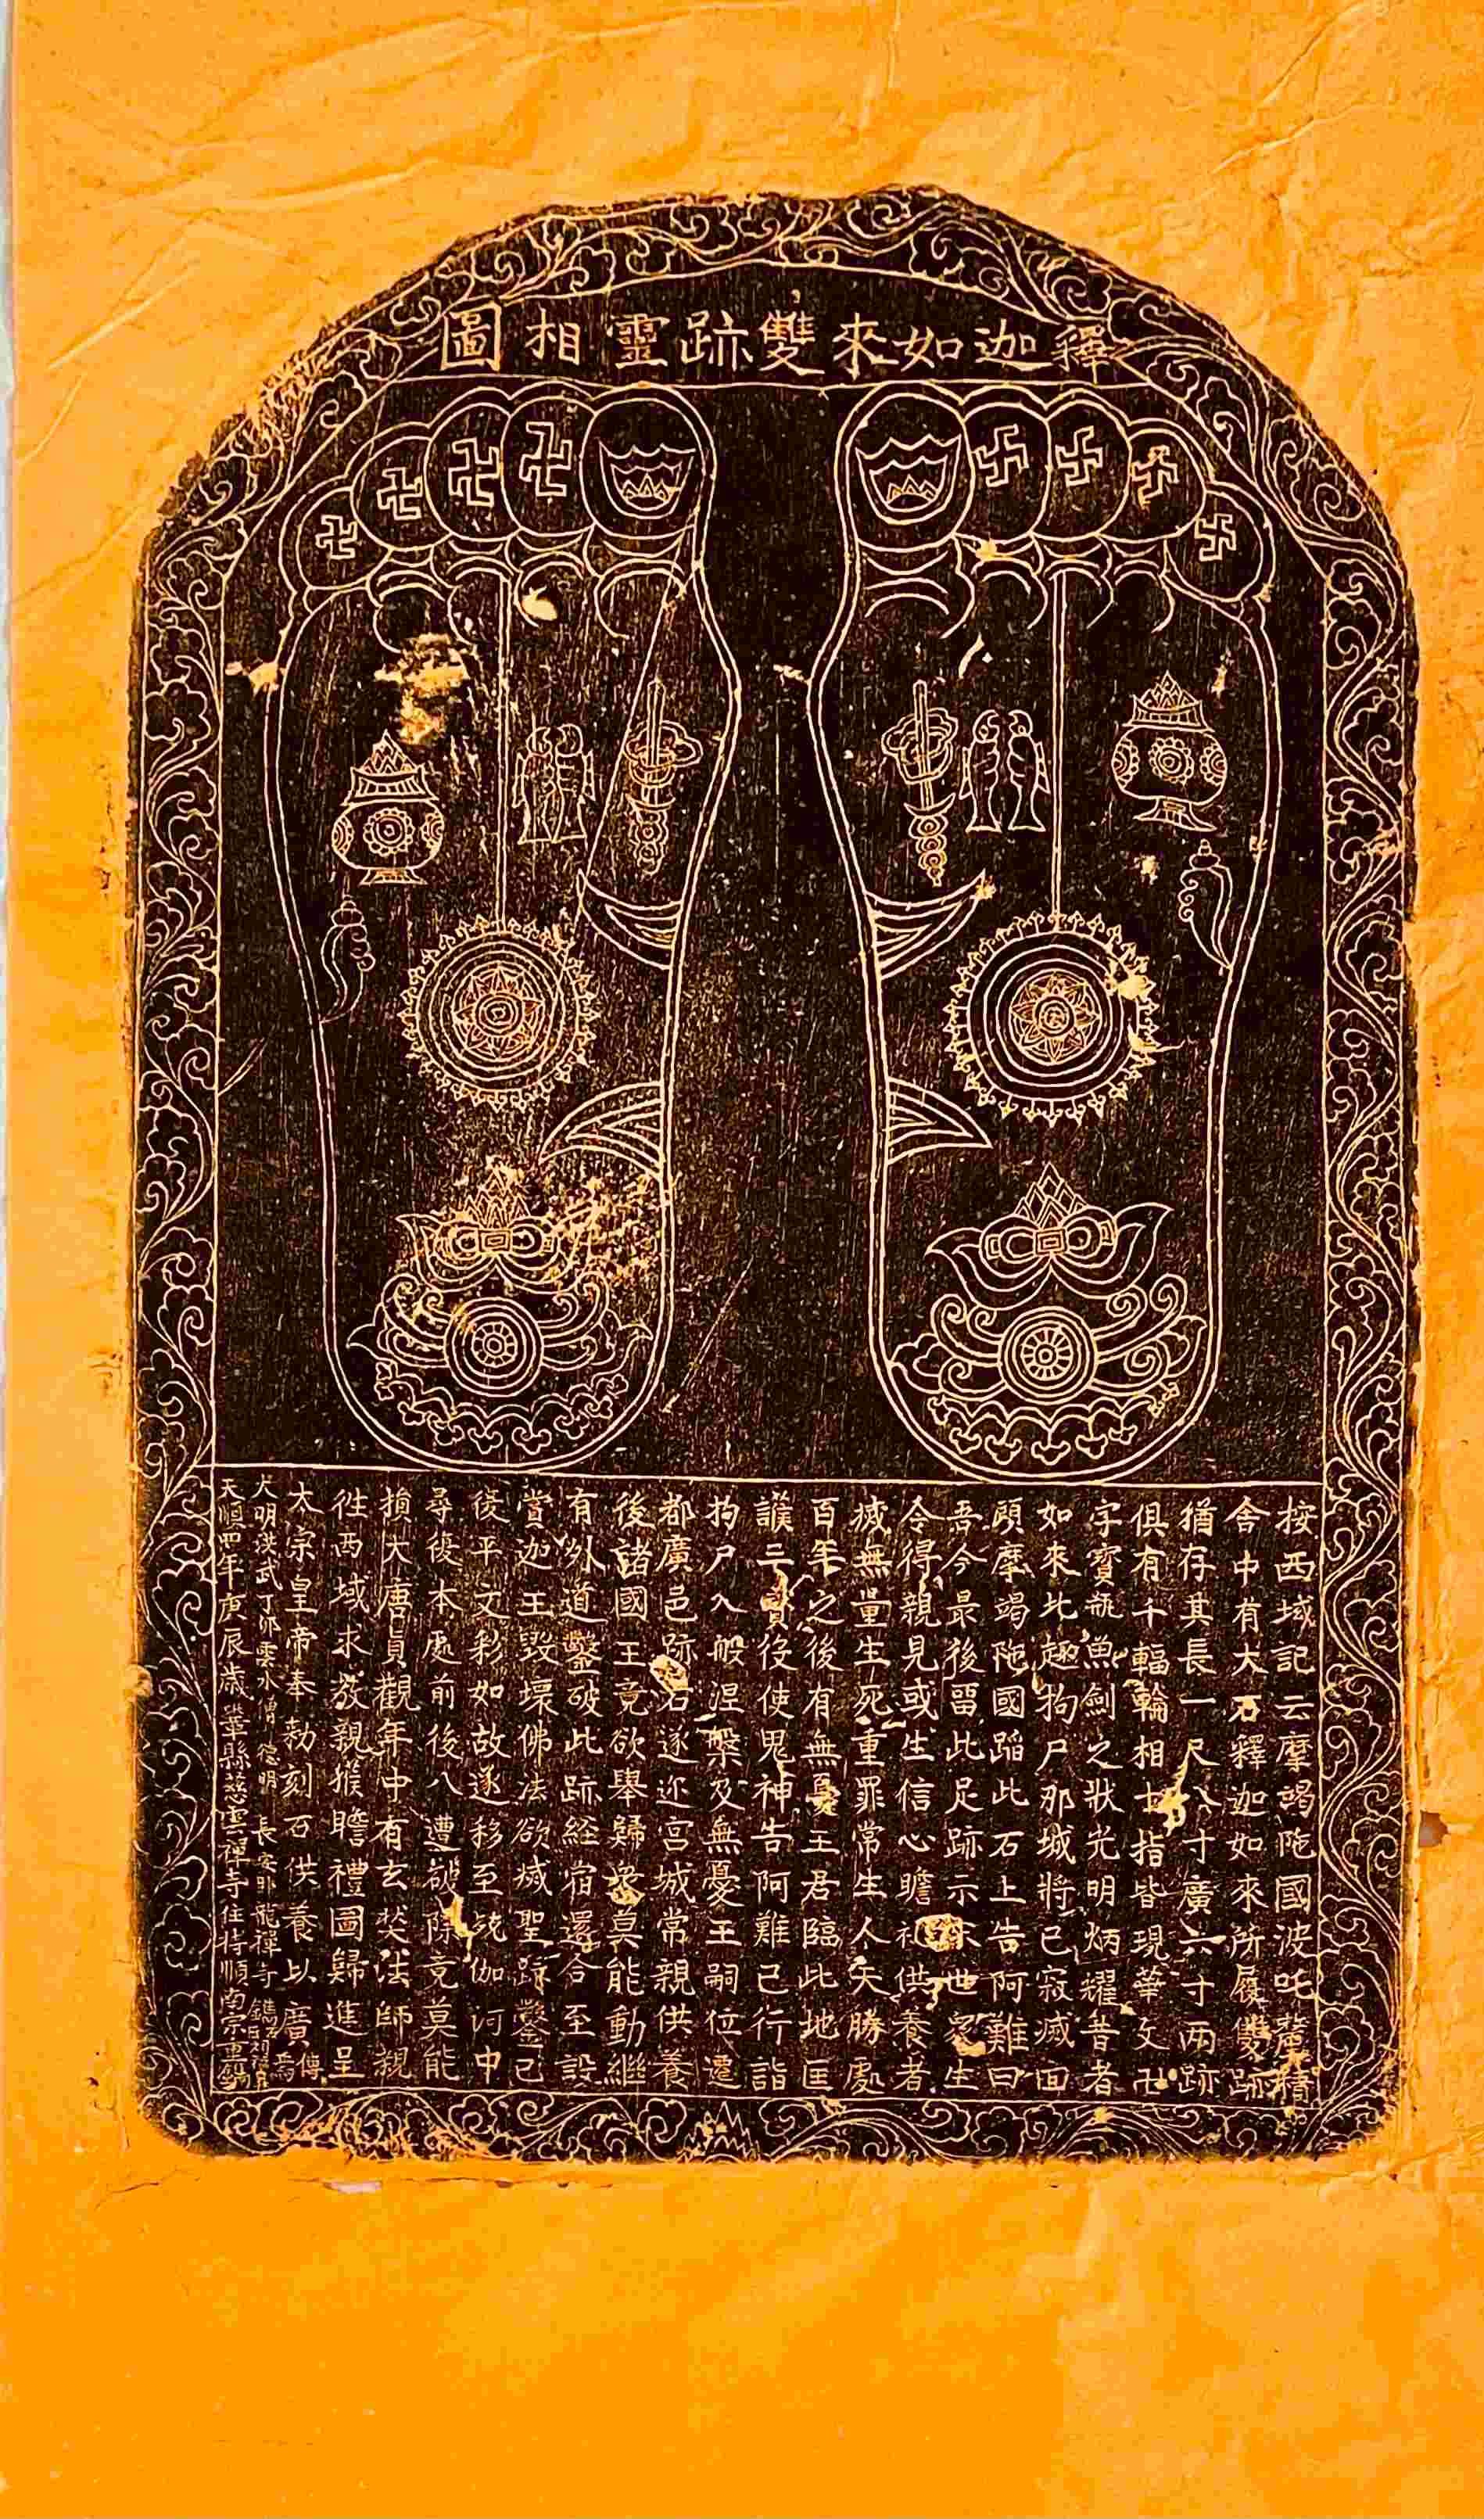 釋迦如來雙跡靈相圖
按西域記云摩竭陁國波吒釐精
舍中有大石釋迦如來所履雙跡
猶存其長一尺八寸廣六寸兩跡
俱有千輻輪相十指皆現華文卍
字寶瓶魚劍之狀光明炳耀昔者
如來北趣拘尸那城將已寂滅回
顧摩竭陁國蹈此石上告阿難曰
吾今最後留此足跡示末世眾生
令得親見或生信心瞻禮供養者
滅無量生死重罪常生人天勝處
百年之後有無憂王君臨此地匡
護三寶役使鬼神告阿難已行詣
拘尸入般涅槃及無憂王嗣位遷
都廣邑跡石遂迩宮城常親供養
後諸國王竟欲舉歸眾莫能動繼
有外道鑿破此跡經宿還合至設
賞迦王毀壞佛法欲滅聖跡鑿已
復平文彩如故遂移至殑伽河中
尋復本處前後八遭破除竟莫能
損大唐貞觀年中有玄奘法師親
往西域求教親獲瞻禮圖歸進呈
太宗皇帝奉勅刻石供養以廣傳焉
大明洪武丁卯雲水僧德明長安卧龍禪寺鐫
天順四年庚辰歲鞏縣慈雲禪寺住持順南宗